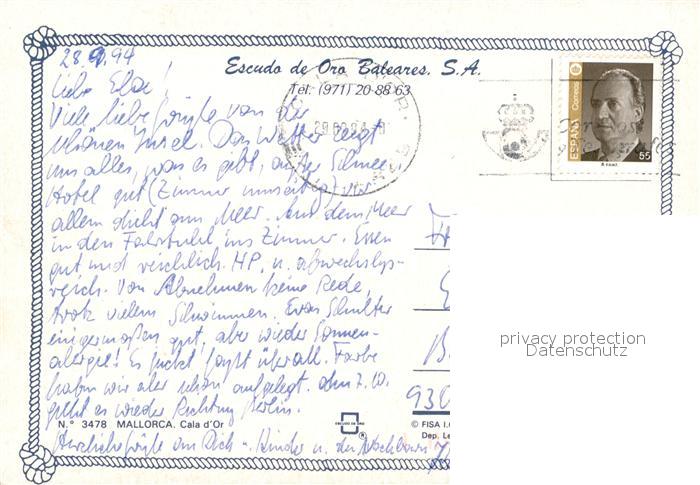 28.9.94
Escudo de Oro Baleares. S.A.
Tel: (971) 20 88 63
Liebe Elsa!
Viele liebe Grüße von der
schönen Insel. Das Wetter zeigt
uns alles, was es gibt, außer Schnee.
Hotel gut (Zimmer umseitig) vor
allem dicht am Meer. Aus dem Meer
in den Fahrstuhl ins Zimmer. Essen
gut und reichlich. HP. u. abwechslgs-
reich. Von Abnehmen keine Rede,
trotz vielem Schwimmen. Evas Schulter
einigermaßen gut, aber wieder Sonnen-
alergie! Es juckt fast überall. Farbe
haben wir aber schon aufgelegt. Am 7.10.
geht es wieder Richtung Berlin.
Herzliche Grüße an Dich - Kinder u. der Nachbarn
ESPAÑA
Correos
55
930
privacy protection
Datenschutz
N.° 3478 MALLORCA. Cala d'Or
ESCUDO DE ORO
®
© FISA I.G
Dep. Le